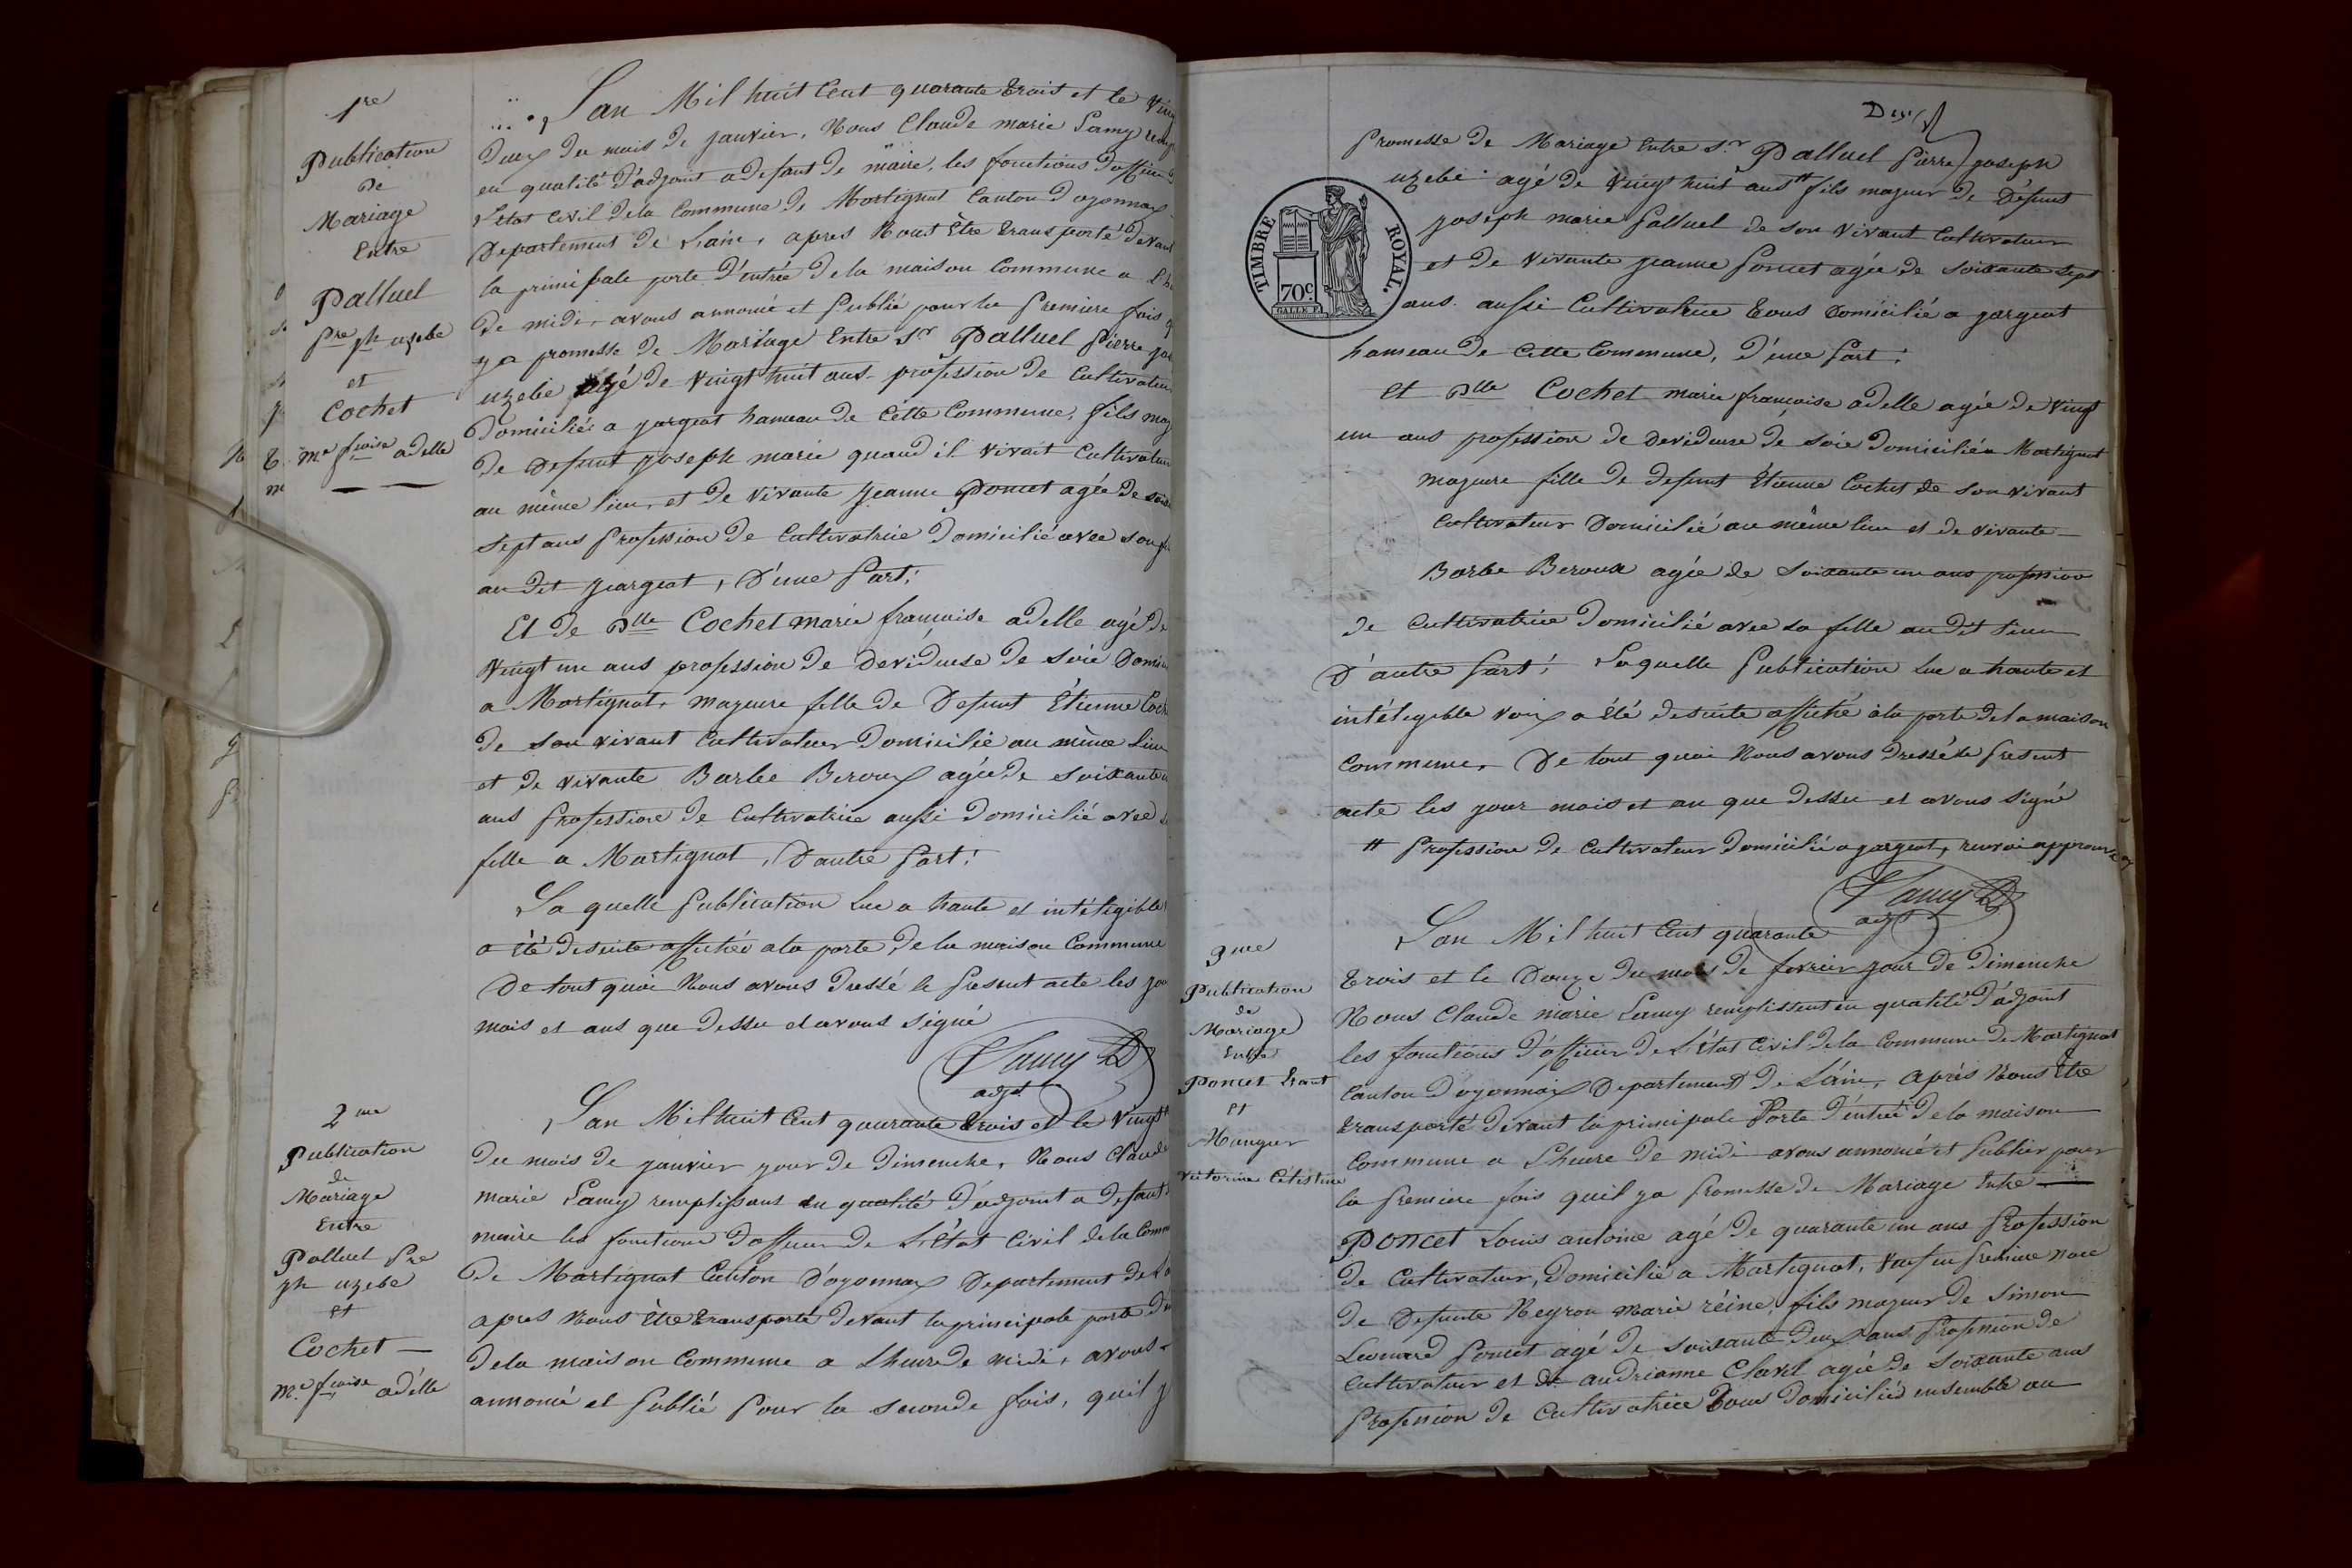 1re
Publication
de
Mariage
Entre
Palluel
Pre ph uzebe
et
Cochet
Me fcoise adelle
L'an Mil huit Cent quarante trois et le Ving
deux du mois de janvier, Nous Claude marie Lamy
en qualité d'adjoint a defaut de maire, les fonctions d'officier
L'état civil de la Commune de Martignat Canton d'oyonnax
Departement de L'ain, apres Nous Être transporté devant
la principale porte d'entrée de la maison Commune a L'h
de midi, avons annoncé et Publié pour la Premiere fois q
y a promesse de Mariage Entre Sr Palluel Pierre jos
uzebe agé de Vingt huit ans profession de Cultivateur
Domicilié a jargeat hameau de Cette Commune, fils maj
de Defunt joseph marie quand il vivait Cultivateur
au même lieu, et de vivante Jeanne Poncet agée de soix
sept ans Profession de Cultivatrice Domicilié avec son
au dit jeargeat, D'une Part;
Et de Dlle Cochet marie françoise adelle agé de
Vingt un ans profession de Devideuse de soie Domici
a Martignat, majeure fille de Defunt Étienne Coch
de son vivant Cultivateur Domicilié au même Lieu
et de vivante Barbe Beroux agée de soixante u
ans Profession de Cultivatrice aussi Domicilié avec s
fille a Martignat, D'autre Part;
La quelle Publication Lue a haute et intéligible
a Été desuite affichée a la porte de la maison Commune
De tout quoi Nous avons Dressé le Present acte les jou
mois et ans que dessu et avons signé
Lamy
adjt
2me
Publication
de
Mariage
Entre
Palluel Pre
ph uzebe
et
Cochet
Me fcoise adélle
L'an Mil huit Cent quarante trois et le Vingt
du mois de janvier jour de Dimenche, Nous Claude
marie Lamy remplissans en qualité d'adjoint a defaut
maire les fonctions d'officier de L'État Civil de la Comm
De Martignat Canton D'oyonnax Departement de L'a
apres Nous Être transporté devant la principale porte d'en
de la maison Commune a L'heure de midi, avons
annoncé et Publié Pour la seconde fois, qu'il y
TIMBRE ROYAL.
70c
Promesse de Mariage Entre Sr Palluel Pierre joseph
uzebe agé de Vingt huit ans # fils majeur de Défunt
joseph marie Palluel de son Vivant Cultivateur
et de Vivante jeanne Poncet agée de soixante sept
ans aussi Cultivatrice tous Domicilié a jargeat
hameau de Cette Commune, D'une Part;
Et Dlle Cochet marie françoise adelle agée de Vingt
un ans profession de devideuse de soie Domiciliéa Martignat
majeure fille de defunt Étienne Cochet de son vivant
Cultivateur Domicilié au même lieu et de vivante
Barbe Beroux agée de Soixante un ans profession
de Cultivatrice Domicilié avec sa fille au dit Lieu
D'autre Part; Laquelle Publication Lue a haute et
intéligible voix a Été desuite affiché a la porte de la maison
Commune, De tout quoi Nous avons Dressé le Present
acte les jour mois et an que dessu et avons signé
# Profession de Cultivateur Domicilié a jargeat, renvoi approuvé
Lamy
adjt
3me
Publication
de
Mariage
Entre
Poncet
et
victorine Célestine
L'an Mil huit Cent quarante
trois et le Douze du mois de fevrier jour de Dimenche
Nous Claude marie Lamy remplissent en qualité d'adjoint
les fonctions d'officier de L'État Civil de la Commune de Martignat
Canton d'oyonnax Departement de L'ain, après Nous Être
transporté devant la principale Porte d'entrée de la maison
Commune a L'heure de midi avons annoncé et Publier pour
la Premiere fois qu'il ya Promesse de Mariage Entre
Poncet Louis antoine agé de quarante un ans Profession
de Cultivateur, Domicilié a Martignat, Veuf en Premiere Noce
de Defunte Neyron marie réine, fils majeur de Simon
Leonard Poncet agé de soixante deux ans Profession de
Cultivateur et de andrianne Clavel agée de soixante ans
Profession de Cultivatrice tous Domiciliés ensemble au